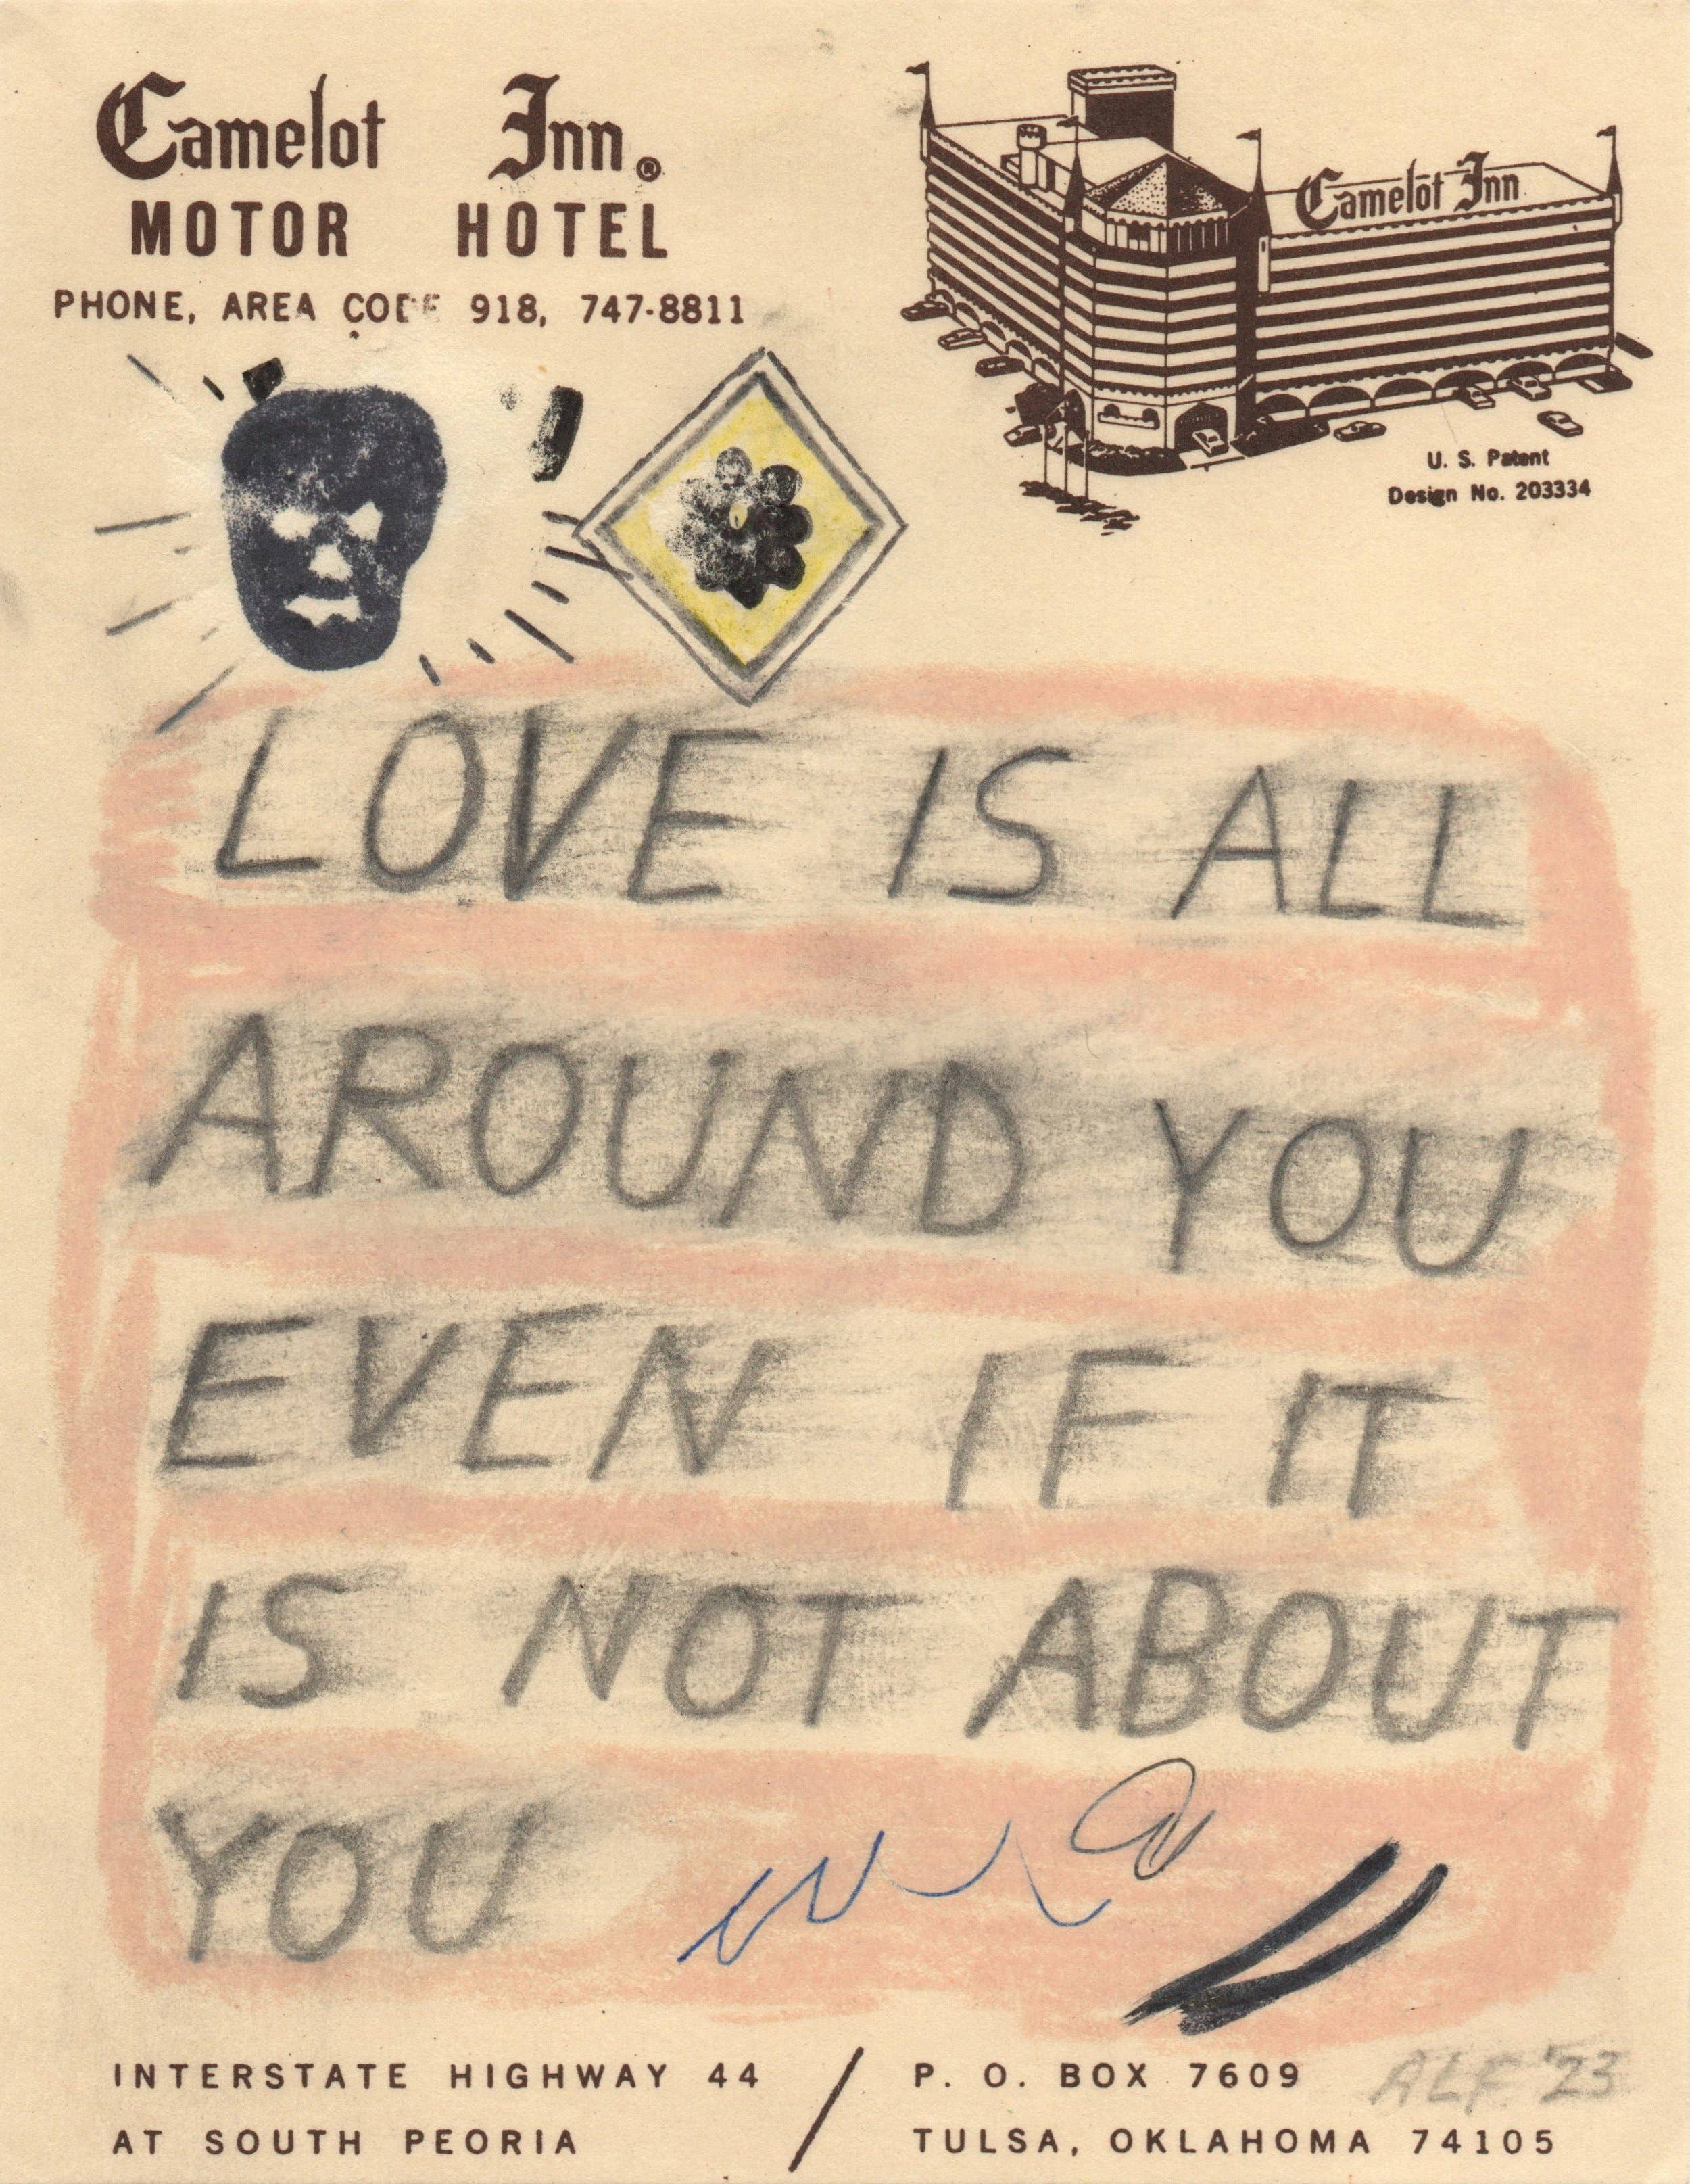 Camelot Inn®
MOTOR HOTEL
PHONE, AREA CODE 918, 747-8811
Camelot Inn
U. S. Patent
Design No. 203334
LOVE IS ALL
AROUND YOU
EVEN IF IT
IS NOT ABOUT
YOU
INTERSTATE HIGHWAY 44 / P. O. BOX 7609
AT SOUTH PEORIA TULSA, OKLAHOMA 74105
ALF '23